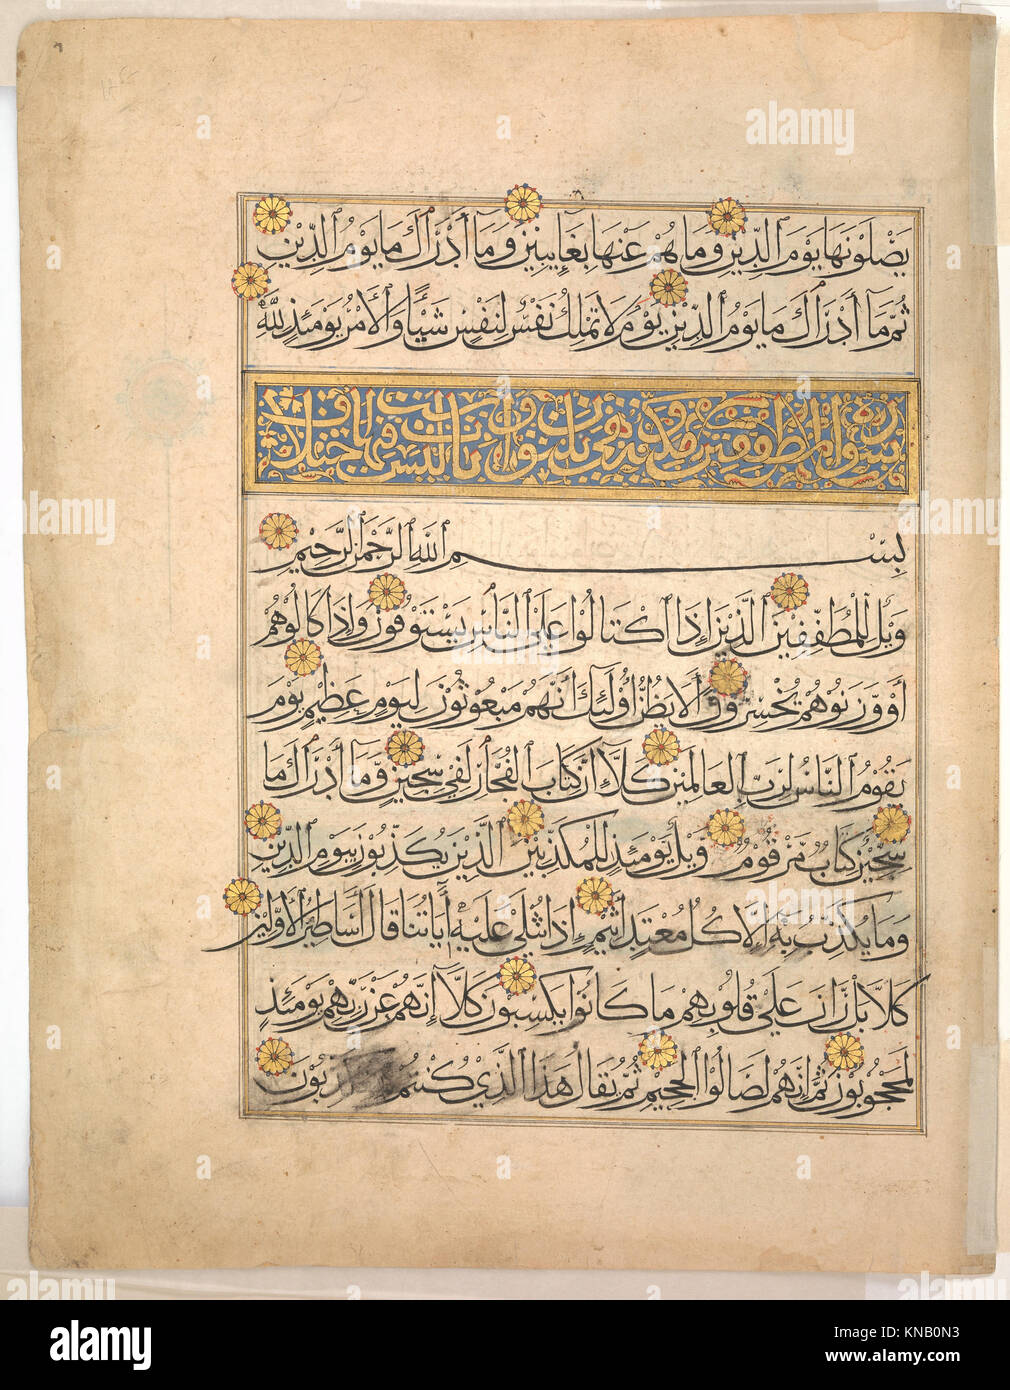 يَصْلَوْنَهَا يَوْمَ الدِّينِ وَمَا هُمْ عَنْهَا بِغَائِبِينَ وَمَا أَدْرَاكَ مَا يَوْمُ الدِّينِ
ثُمَّ مَا أَدْرَاكَ مَا يَوْمُ الدِّينِ يَوْمَ لَا تَمْلِكُ نَفْسٌ لِنَفْسٍ شَيْئًا وَالْأَمْرُ يَوْمَئِذٍ لِلَّهِ
سورة المطففين
بِسْمِ اللَّهِ الرَّحْمَنِ الرَّحِيمِ
وَيْلٌ لِلْمُطَفِّفِينَ الَّذِينَ إِذَا اكْتَالُوا عَلَى النَّاسِ يَسْتَوْفُونَ وَإِذَا كَالُوهُمْ
أَوْ وَزَنُوهُمْ يُخْسِرُونَ أَلَا يَظُنُّ أُولَئِكَ أَنَّهُمْ مَبْعُوثُونَ لِيَوْمٍ عَظِيمٍ يَوْمَ
يَقُومُ النَّاسُ لِرَبِّ الْعَالَمِينَ كَلَّا إِنَّ كِتَابَ الْفُجَّارِ لَفِي سِجِّينٍ وَمَا أَدْرَاكَ مَا
سِجِّينٌ كِتَابٌ مَرْقُومٌ وَيْلٌ يَوْمَئِذٍ لِلْمُكَذِّبِينَ الَّذِينَ يُكَذِّبُونَ بِيَوْمِ الدِّينِ
وَمَا يُكَذِّبُ بِهِ إِلَّا كُلُّ مُعْتَدٍ أَثِيمٍ إِذَا تُتْلَى عَلَيْهِ آيَاتُنَا قَالَ أَسَاطِيرُ الْأَوَّلِينَ
كَلَّا بَلْ رَانَ عَلَى قُلُوبِهِمْ مَا كَانُوا يَكْسِبُونَ كَلَّا إِنَّهُمْ عَنْ رَبِّهِمْ يَوْمَئِذٍ
لَمَحْجُوبُونَ ثُمَّ إِنَّهُمْ لَصَالُوا الْجَحِيمِ ثُمَّ يُقَالُ هَذَا الَّذِي كُنْتُمْ
alamy
Image ID: KNB0N3
www.alamy.com